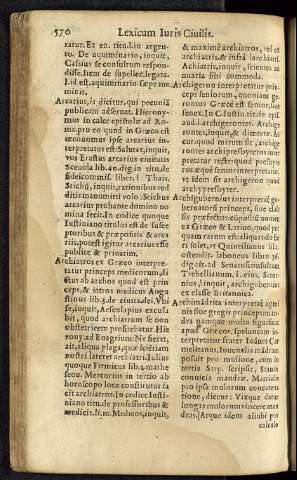 570 Lexicum Iuris Ciuilis.
ratur. Et eo. titu. l. in argen-
to. De aquiminario, inquit,
Cassius se consultum respon-
disse. Item de supellect. legata.
l. id est. aquiminario sæpe me-
minit.
Arcarius, is dicitur, qui pecuniã
publicam adseruat. Hierony-
mus in calce epistolæ ad Ro-
ma. pro eo quod in Græco est
οἰκονόμος ipse arcarius in-
terpretatus est: Salutat, inquit,
vos Erastus arcarius ciuitatis
Sceuola lib. 40. dig. in titu. de
fideicommiss. liber. l. Thais.
Stichus, inquit, rationibus red
ditis manumitti volo: Stichus
arcarius probante domino no
mina fecit. In codice quoque
Iustiniano tituli est de susce
ptoribus & præpositis & arca
riis. potest igitur arcarius esse
publice & priuatim.
Archiatros ex Græco interpre-
tatur princeps medicorum, di
ctus ab archos quod est prin
ceps, & iatros medicus Augu
stinus lib. 3. de ciuita. dei. Vbi
se, inquit, Aesculapius excusa
bit, quod archiatrum se non
obstetricem profitebatur? Hie
rony. ad Euagrium: Ne fieret,
ait, aliqua plaga, quæ scientiam
nostri lateret archiatri. Iulius
quoque Firmicus lib. 4. mathe
seon. Mercurius in tertio ab
horoscopo loco constitutus fa
cit archiatros. In codice Iusti-
niano titu. de professoribus &
medicis. li. 10. Medicos, inquit,
& maximè archiatros, vel ex
archiatris. & infrà l. archiatri.
Archiatri, inquit, scientes an
nuaria sibi commoda.
Archigeron interpretatur prin-
ceps seniorum, quoniam ge-
rontos Græcè est senior, siue
senex. In C. Iustin. titulo epis.
aud. l. archigerontes. Archige
rontes, inquit, &
cur. quod mirum sit, archige
rontes archipresbyteros inter
pretatur recte: quod presbyte
ros æquè senior interpretatur,
vt idem sit archigeron quod
archypresbyter.
Archigubernius interpretat guber
bernatorũ princeps, siue clas
sis præfectus: copositũ nomen
ex Græco & Latino, quod pe
quam rarum est aliquando fie
ri solet, vt Quintilianus libr. 1
ostendit. Iabolenus libro 36.
dig. tit. ad Senatusconsultum
Trebellianum. l. eius, Seius
nius, inquit, archigubernius
ex classe Britannica.
Archimãdrita interpretat agni
nis siue gregis princeps: man-
dra namque multa significat
apud Græcos. Speluncam in-
terpretatur frater Ioãnes Ca
melitanus. Iuuenalis mãdram
posuit pro mulione, cum in
tertia Saty. scripsit, Stantis
conuicia mandræ. Martialis
pro ipsa mulorum concite-
tione, dicens: Vixque datur
longas mulorum vincere man
dras. Atque idem aliubi pro
calculo